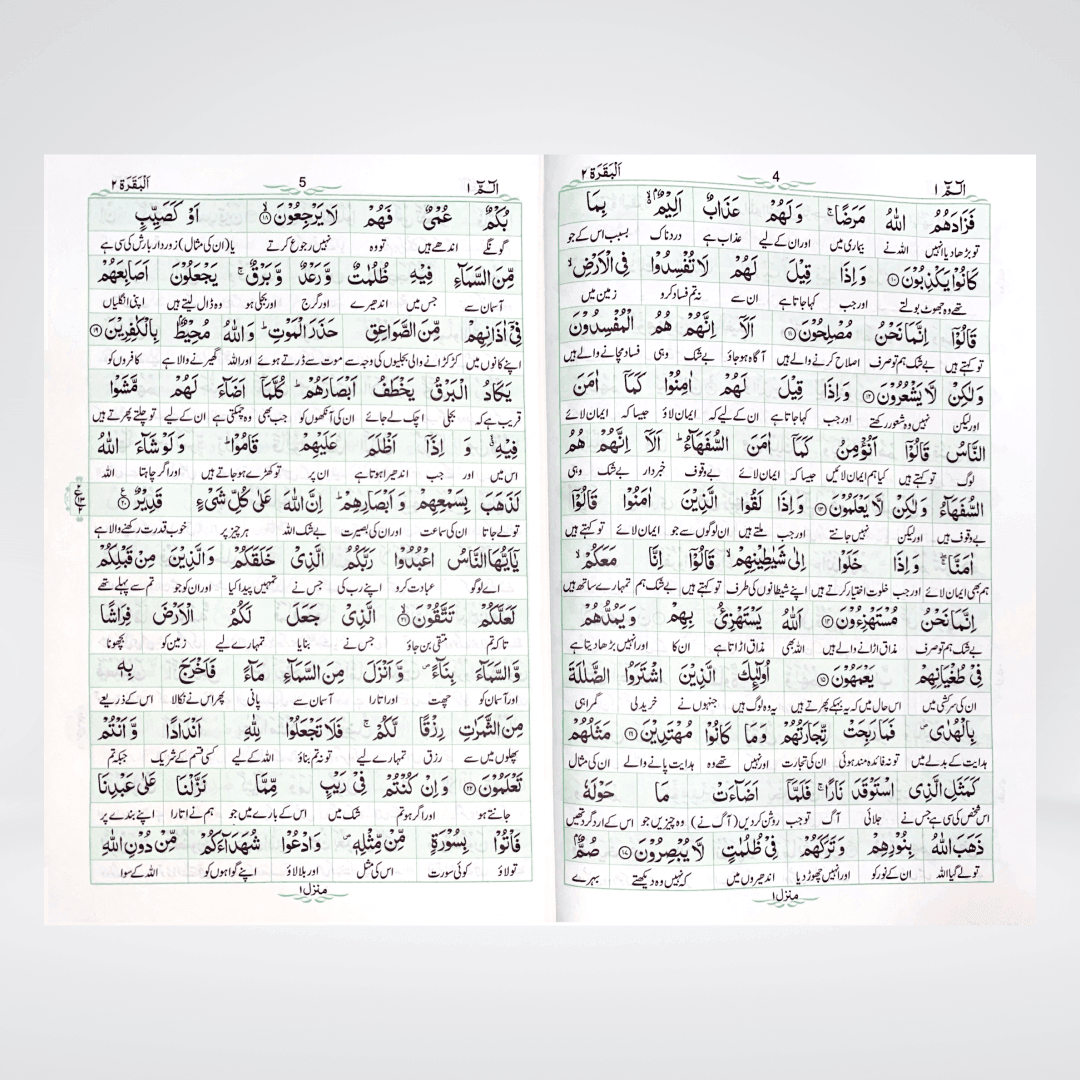 الٓمّٓ ١ 4 اَلْبَقَرَة ٢
فَزَادَهُمُ اللّٰهُ مَرَضًا ۚ وَلَهُمْ عَذَابٌ اَلِيْمٌۢ ۙ بِمَا
تو بڑھا دیا انہیں اللہ نے بیماری میں اور ان کے لیے عذاب ہے دردناک بسبب اس کے جو
كَانُوْا يَكْذِبُوْنَ ۝١٠ وَاِذَا قِيْلَ لَهُمْ لَا تُفْسِدُوْا فِى الْاَرْضِ ۙ
تھے وہ جھوٹ بولتے اور جب کہا جاتا ہے ان سے نہ تم فساد کرو زمین میں
قَالُوْٓا اِنَّمَا نَحْنُ مُصْلِحُوْنَ ۝١١ اَلَآ اِنَّهُمْ هُمُ الْمُفْسِدُوْنَ
تو کہتے ہیں بے شک ہم تو صرف اصلاح کرنے والے ہیں آگاہ ہو جاؤ بے شک وہی فساد مچانے والے ہیں
وَلٰكِنْ لَّا يَشْعُرُوْنَ ۝١٢ وَاِذَا قِيْلَ لَهُمْ اٰمِنُوْا كَمَآ اٰمَنَ
اور لیکن نہیں وہ شعور رکھتے اور جب کہا جاتا ہے ان کے لیے کہ ایمان لاؤ جیسا کہ ایمان لائے
النَّاسُ قَالُوْٓا اَنُؤْمِنُ كَمَآ اٰمَنَ السُّفَهَآءُ ؕ اَلَآ اِنَّهُمْ هُمُ
لوگ تو کہتے ہیں کیا ہم ایمان لائیں جیسا کہ ایمان لائے بے وقوف خبردار بے شک وہی
السُّفَهَآءُ وَلٰكِنْ لَّا يَعْلَمُوْنَ ۝١٣ وَاِذَا لَقُوا الَّذِيْنَ اٰمَنُوْا قَالُوْٓا
بے وقوف ہیں اور لیکن نہیں جانتے اور جب ملتے ہیں ان لوگوں سے جو ایمان لائے تو کہتے ہیں
اٰمَنَّا ۚ وَاِذَا خَلَوْا اِلٰى شَيٰطِيْنِهِمْ ۙ قَالُوْٓا اِنَّا مَعَكُمْ ۙ
ہم بھی ایمان لائے اور جب خلوت اختیار کرتے ہیں اپنے شیطانوں کی طرف تو کہتے ہیں بے شک ہم تمہارے ساتھ ہیں
اِنَّمَا نَحْنُ مُسْتَهْزِءُوْنَ ۝١٤ اَللّٰهُ يَسْتَهْزِئُ بِهِمْ وَيَمُدُّهُمْ
بے شک ہم تو صرف مذاق اڑانے والے ہیں اللہ بھی مذاق اڑاتا ہے ان کا اور انہیں بڑھا دیتا ہے
فِىْ طُغْيَانِهِمْ يَعْمَهُوْنَ ۝١٥ اُولٰٓئِكَ الَّذِيْنَ اشْتَرَوُا الضَّلٰلَةَ
ان کی سرکشی میں اس حال میں کہ یہ بہکے پھرتے ہیں یہ وہ لوگ ہیں جنہوں نے خرید لی گمراہی
بِالْهُدٰى ۪ فَمَا رَبِحَتْ تِّجَارَتُهُمْ وَمَا كَانُوْا مُهْتَدِيْنَ ۝١٦ مَثَلُهُمْ
ہدایت کے بدلے میں تو نہ فائدہ مند ہوئی ان کی تجارت اور نہیں تھے وہ ہدایت پانے والے ان کی مثال
كَمَثَلِ الَّذِى اسْتَوْقَدَ نَارًا ۚ فَلَمَّآ اَضَآءَتْ مَا حَوْلَهٗ
اس شخص کی سی ہے جس نے جلائی آگ تو جب روشن کر دیں (آگ نے) وہ چیزیں جو اس کے ارد گرد تھیں
ذَهَبَ اللّٰهُ بِنُوْرِهِمْ وَتَرَكَهُمْ فِىْ ظُلُمٰتٍ لَّا يُبْصِرُوْنَ ۝١٧ صُمٌّۢ
تو لے گیا اللہ ان کے نور کو اور انہیں چھوڑ دیا اندھیروں میں کہ نہیں وہ دیکھتے بہرے
منزل ١
الٓمّٓ ١ 5 اَلْبَقَرَة ٢
بُكْمٌ عُمْىٌ فَهُمْ لَا يَرْجِعُوْنَ ۝١٨ اَوْ كَصَيِّبٍ
گونگے اندھے ہیں تو وہ نہیں رجوع کرتے یا (ان کی مثال) زوردار بارش کی سی ہے
مِّنَ السَّمَآءِ فِيْهِ ظُلُمٰتٌ وَّرَعْدٌ وَّبَرْقٌ ۚ يَجْعَلُوْنَ اَصَابِعَهُمْ
آسمان سے جس میں اندھیرے اور گرج اور بجلی ہو وہ ڈال لیتے ہیں اپنی انگلیاں
فِىْٓ اٰذَانِهِمْ مِّنَ الصَّوَاعِقِ حَذَرَ الْمَوْتِ ؕ وَاللّٰهُ مُحِيْطٌۢ بِالْكٰفِرِيْنَ ۝١٩
اپنے کانوں میں کڑکڑانے والی بجلیوں کی وجہ سے موت سے ڈرتے ہوئے اور اللہ گھیرنے والا ہے کافروں کو
يَكَادُ الْبَرْقُ يَخْطَفُ اَبْصَارَهُمْ ؕ كُلَّمَآ اَضَآءَ لَهُمْ مَّشَوْا
قریب ہے کہ بجلی اچک لے جائے ان کی آنکھوں کو جب بھی وہ چمکتی ہے ان کے لیے تو چلتے پھرتے ہیں
فِيْهِ ۙ وَ اِذَآ اَظْلَمَ عَلَيْهِمْ قَامُوْا ؕ وَلَوْ شَآءَ اللّٰهُ
اس میں اور جب اندھیرا ہوتا ہے ان پر تو کھڑے ہو جاتے ہیں اور اگر چاہتا اللہ
لَذَهَبَ بِسَمْعِهِمْ وَاَبْصَارِهِمْ ؕ اِنَّ اللّٰهَ عَلٰى كُلِّ شَىْءٍ قَدِيْرٌ ۝٢٠
تو لے جاتا ان کی سماعت اور ان کی بصیرت بے شک اللہ ہر چیز پر خوب قدرت رکھنے والا ہے
يٰٓاَيُّهَا النَّاسُ اعْبُدُوْا رَبَّكُمُ الَّذِىْ خَلَقَكُمْ وَالَّذِيْنَ مِنْ قَبْلِكُمْ
اے لوگو عبادت کرو اپنے رب کی جس نے تمہیں پیدا کیا اور ان کو جو تم سے پہلے تھے
لَعَلَّكُمْ تَتَّقُوْنَ ۝٢١ الَّذِىْ جَعَلَ لَكُمُ الْاَرْضَ فِرَاشًا
تاکہ تم متقی بن جاؤ جس نے بنایا تمہارے لیے زمین کو بچھونا
وَّالسَّمَآءَ بِنَآءً ۪ وَّاَنْزَلَ مِنَ السَّمَآءِ مَآءً فَاَخْرَجَ بِهٖ
اور آسمان کو چھت اور اتارا آسمان سے پانی پھر اس نے نکالا اس کے ذریعے
مِنَ الثَّمَرٰتِ رِزْقًا لَّكُمْ ۚ فَلَا تَجْعَلُوْا لِلّٰهِ اَنْدَادًا وَّاَنْتُمْ
پھلوں میں سے رزق تمہارے لیے تو نہ تم بناؤ اللہ کے لیے کسی قسم کے شریک جبکہ تم
تَعْلَمُوْنَ ۝٢٢ وَاِنْ كُنْتُمْ فِىْ رَيْبٍ مِّمَّا نَزَّلْنَا عَلٰى عَبْدِنَا
جانتے ہو اور اگر ہو تم شک میں اس کے بارے میں جو ہم نے اتارا اپنے بندے پر
فَاْتُوْا بِسُوْرَةٍ مِّنْ مِّثْلِهٖ ۪ وَادْعُوْا شُهَدَآءَكُمْ مِّنْ دُوْنِ اللّٰهِ
تو لاؤ کوئی سورت اس کی مثل اور بلا لاؤ اپنے گواہوں کو اللہ کے سوا
منزل ١